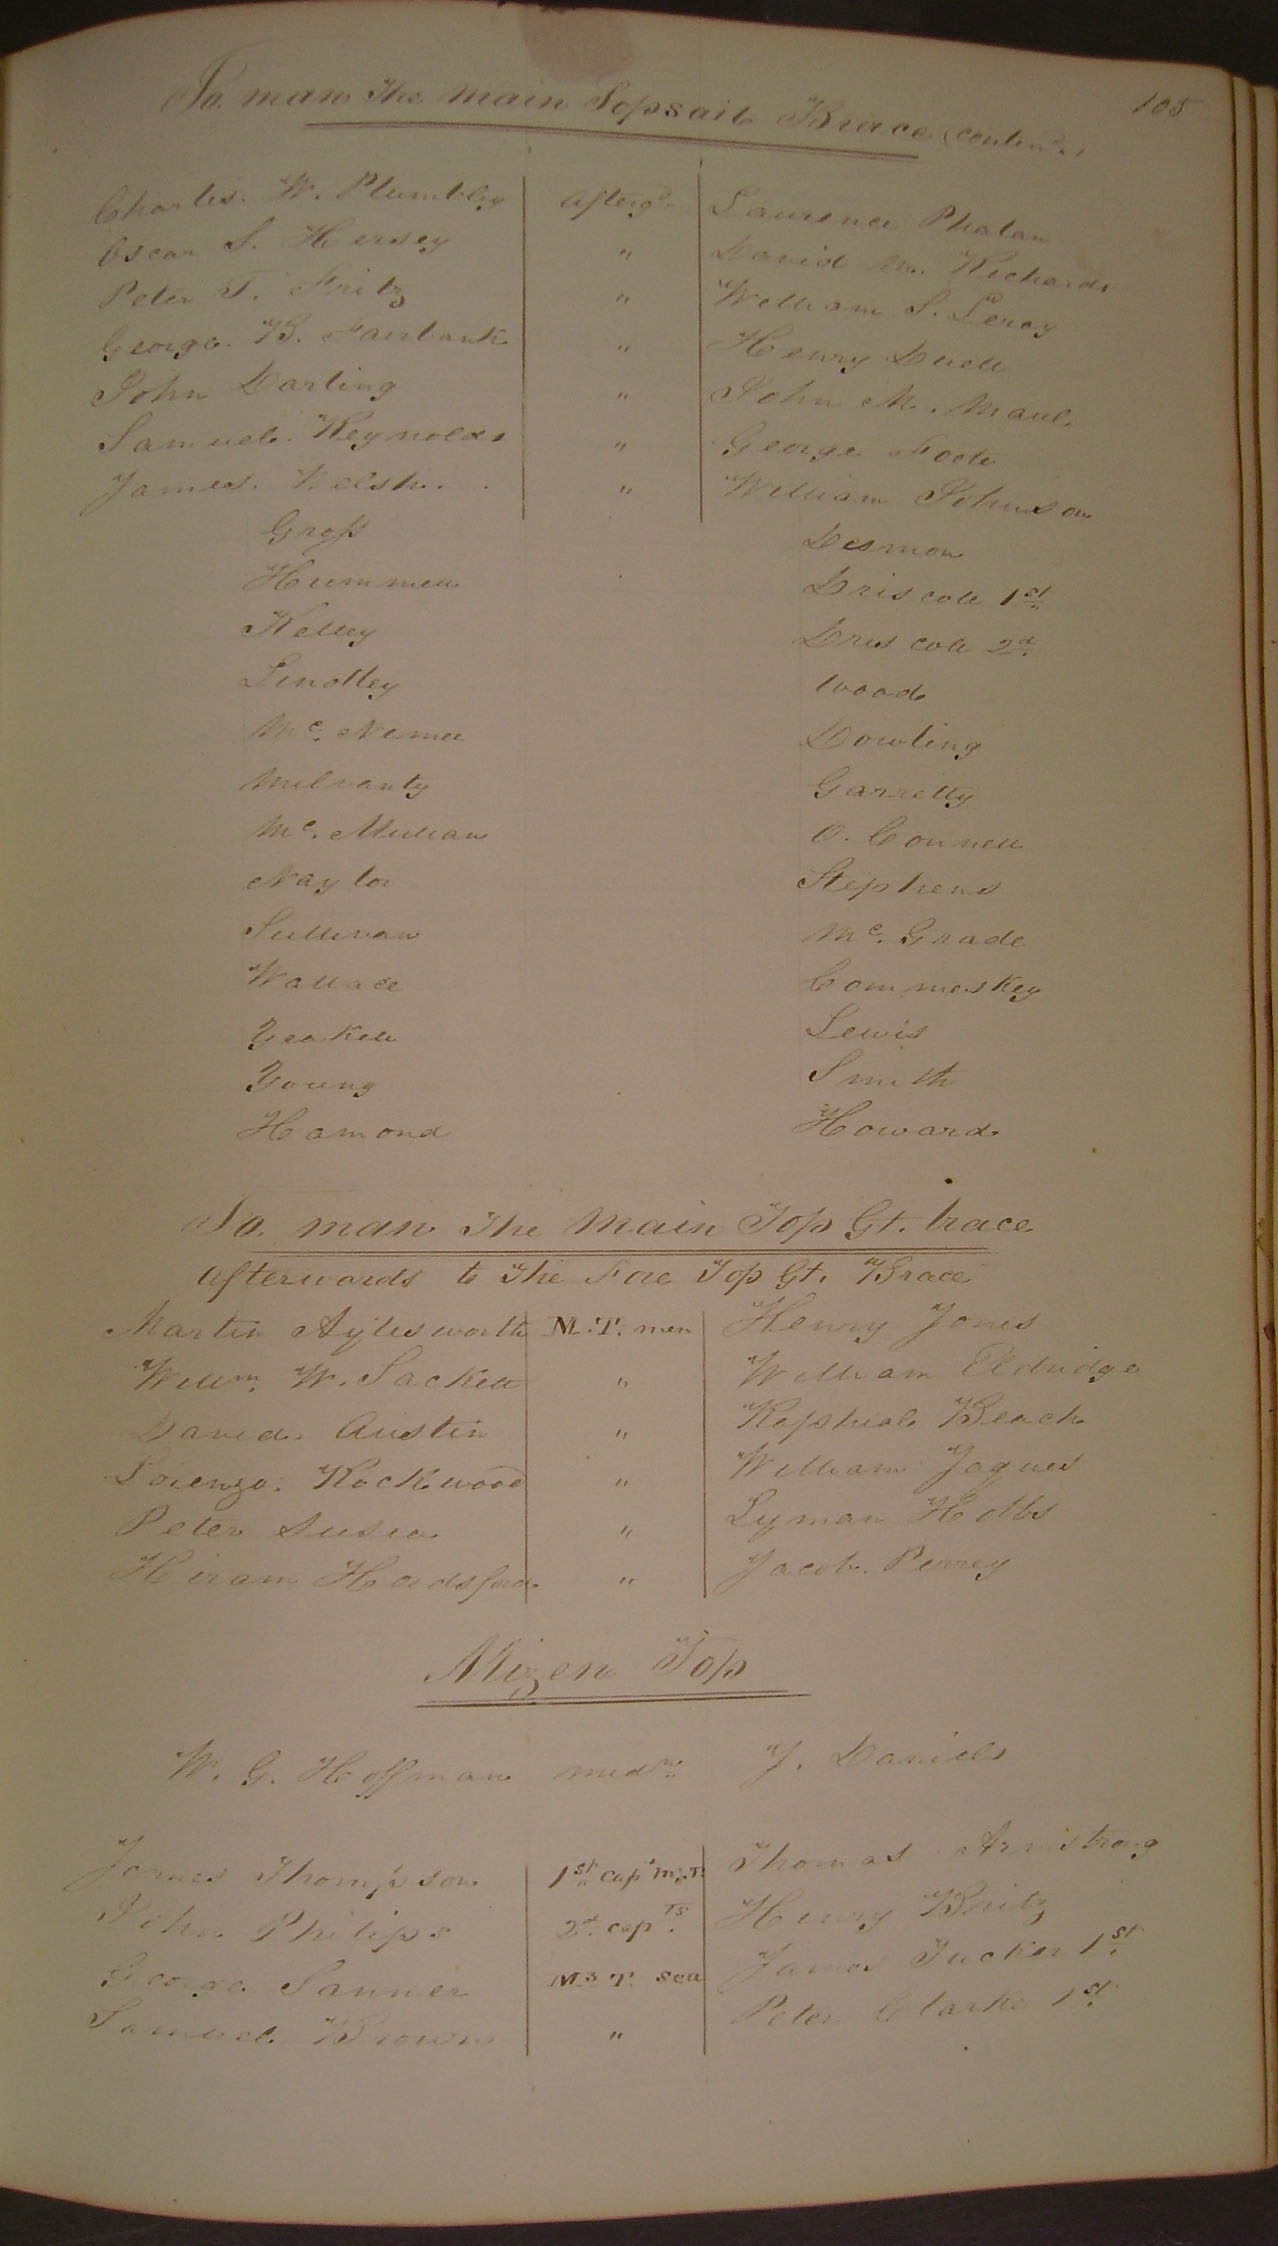 105
To man The main Topsail Brace (contin'd.)
Charles. W. Plumbley afterg'd. Laurence Phalan
Oscar S. Hersey " David M. Richards
Peter T. Fritz " William S. Leroy
George. B. Fairbank " Henry Duell
John Darling " John M. Maul.
Samuel. Reynolds " George Foote
James. Welsh. " William Johnson
Gross Desmon
Hummell Driscoll 1st.
Kelley Driscoll 2d.
Lindley Wood
Mc. Nemee Dowling
Milvanty Garretty
Mc. Mullan O. Connell
Naylor Stephens
Sullivan Mc. Grade
Wallace Commeskey
Yeakell Lewis
Young Smith
Hamond Howard
To. man The Main Top Gt. brace
afterwards to The Fore Top Gt. Brace
Martin Aylesworth M.T. men Henry Jones
Willm. W. Sackett " William Eldridge
David. Austin " Raphial Beach
Lorenzo. Rockwood " William Jaques
Peter " Lyman Hobbs
Hiram Hordsford. " Jacob. Perrey
Mizen Top
W. G. Hoffman midn. J. Daniels
James Thompson 1st. cap' m.z.T. Thomas Armstrong
John Philips 2d. capTs. Henry Britz
George Sanner Mz T. sea James Tucker 1st.
Samuel. Brown " Peter Clarke 1st.